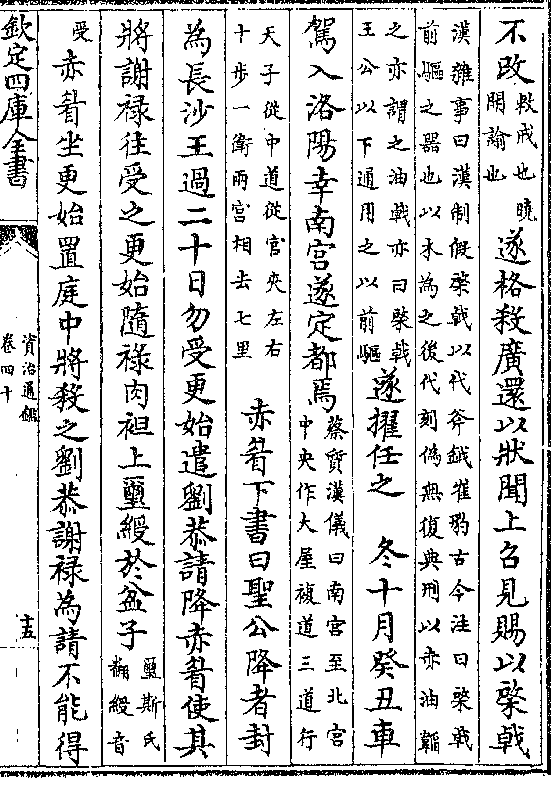 不改敕戒也曉
開諭也遂格殺廣還以狀聞上召見賜以棨戟
漢雜事曰漢制假棨戟以代斧鉞崔豹古今注曰棨戟
前驅之器也以木為之後代刻偽無復典刑以赤油韜
之亦謂之油戟亦曰棨戟
王公以下通用之以前驅遂擢任之　冬十月癸丑車
駕入洛陽幸南宮遂定都焉蔡質漢儀曰南宮至北宮
中央作大屋複道三道行
天子從中道從官夾左右
十步一衛兩宮相去七里　赤眉下書曰聖公降者封
為長沙王過二十日勿受更始遣劉恭請降赤眉使其
將謝禄往受之更始隨禄肉袒上璽綬於盆子璽斯氏
翻綬音
受赤眉坐更始置庭中將殺之劉恭謝禄為請不能得
欽定四庫全書
資治通鑑
卷四十
十五